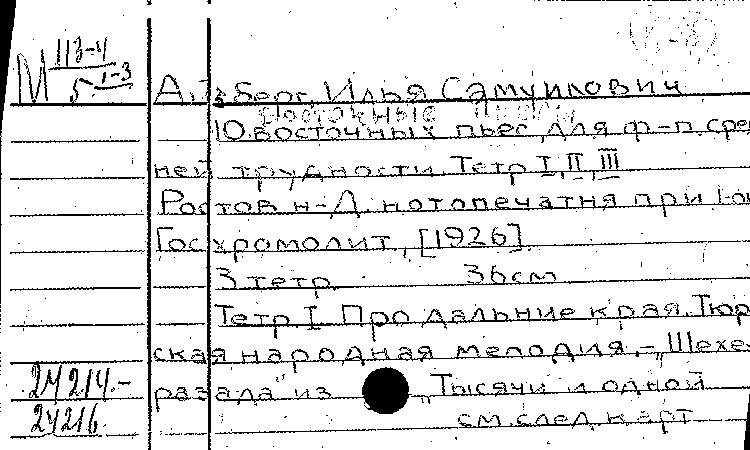 М 113-4
5 1-3
Айсберг, Илья Самуилович
Восточные пьесы
10 восточных пьес для ф-п. сре
ней трудности. Тетр I, II, III
Ростов н-Д. нотопечатня при 1-ой
Госхромолит, [1926].
3 тетр. 36 см
Тетр I. Про дальние края. Тюр
ская народная мелодия. – „Шехе
разада" из „Тысячи и одной
24214.-
24216.
см. след. карт